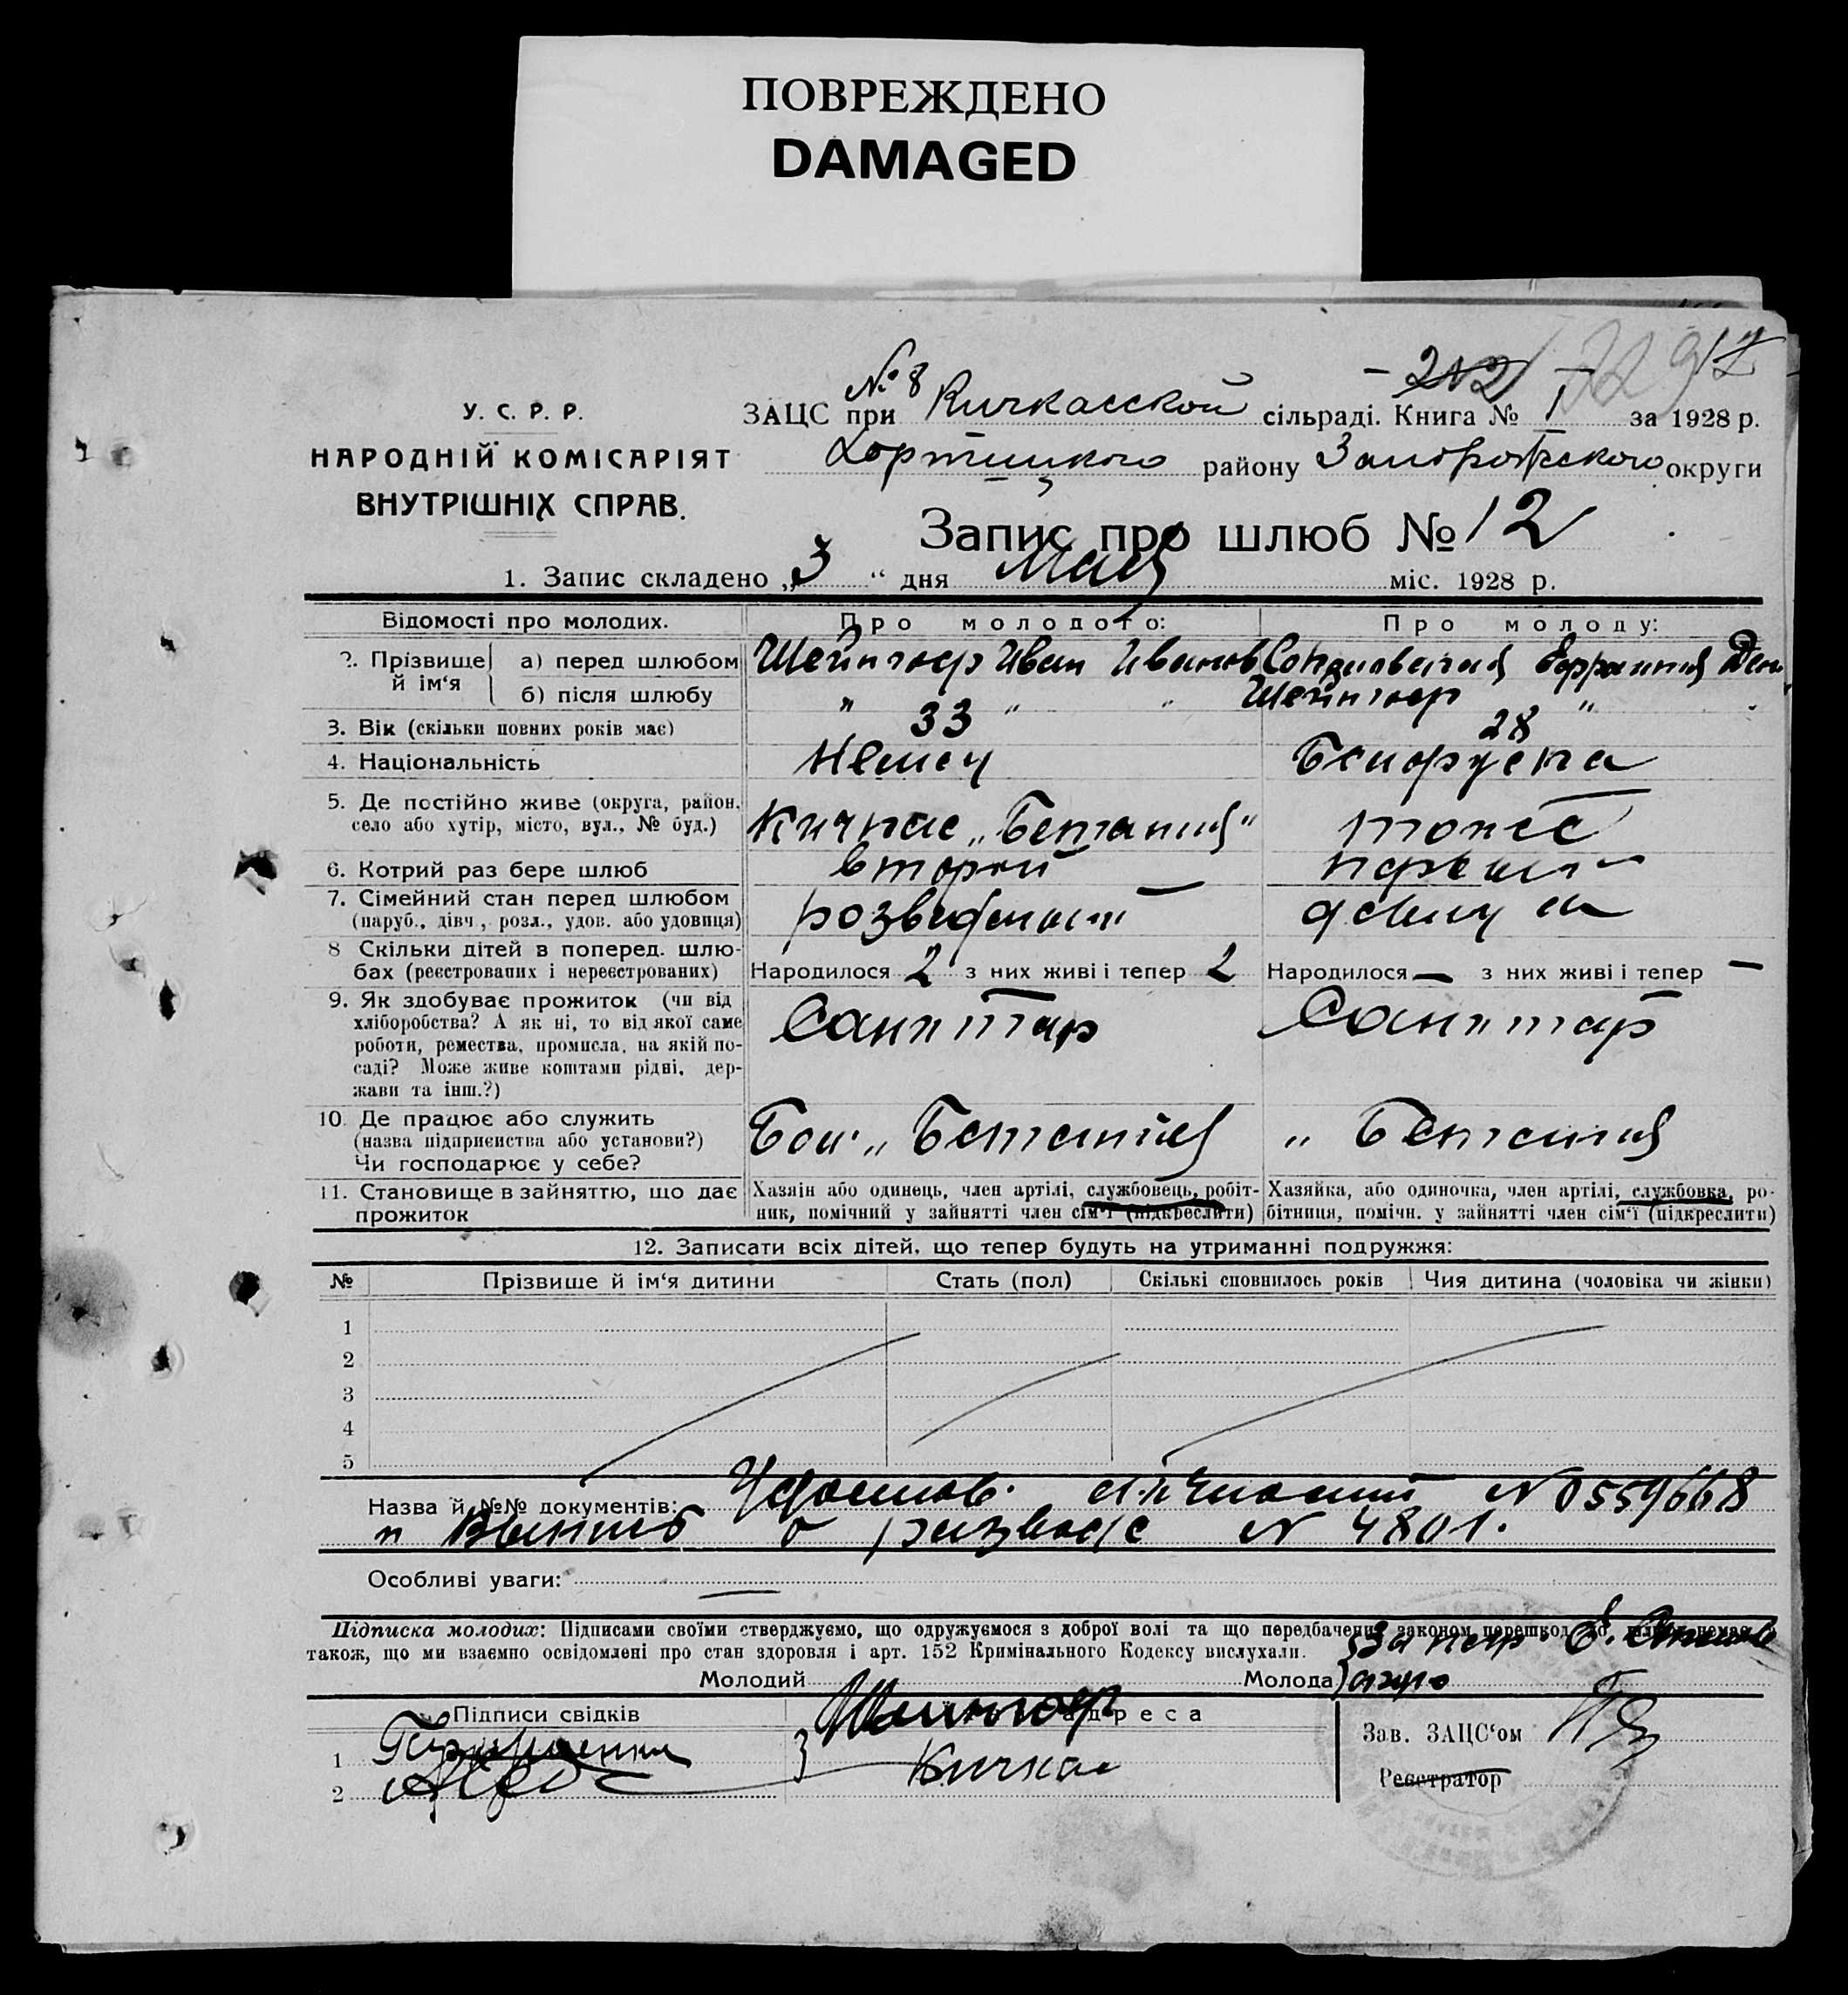 ПОВРЕЖДЕНО
DAMAGED
У. С. Р. Р.
НАРОДНІЙ КОМІСАРІЯТ
ВНУТРІШНІХ СПРАВ.
№ 8
ЗАЦС при Кичкасской сільраді. Книга № I за 1928 р.
Хортицкого району Запорожского округи
Запис про шлюб № 12
1. Запис складено „3“ дня Мая міс. 1928 р.
Відомості про молодих. Про молодого: Про молоду:
2. Прізвище й ім‘я
а) перед шлюбом Иван Иванов
б) після шлюбу " " "
3. Вік (скільки повних років має) 33 28
4. Національність Немец Белоруска
5. Де постійно живе (округа, район, село або хутір, місто, вул., № буд.) Кичкас „Бетания" тоже
6. Котрий раз бере шлюб второй первый
7. Сімейний стан перед шлюбом (паруб., дівч., розл., удов. або удовиця)
8 Скільки дітей в поперед. шлюбах (реєстрованих і нереєстрованих) Народилося 2 з них живі і тепер 2 Народилося — з них живі і тепер —
9. Як здобуває прожиток (чи від хліборобства? А як ні, то від якої саме роботи, ремества, промисла, на якій посаді? Може живе коштами рідні, держави та інш.?) Санитар Санитар
10. Де працює або служить (назва підприєиства або установи?) Чи господарює у себе? Бол. „Бетания „ Бетания
11. Становище в зайняттю, що дає прожиток
Хазяін або одинець, член артілі, службовець, робітник, помічний у зайнятті член сім‘ї (підкреслити)
Хазяйка, або одиночка, член артілі, службовка, робітниця, помічн. у зайнятті член сім‘ї (підкреслити)
12. Записати всіх дітей, що тепер будуть на утриманні подружжя:
№ Прізвище й ім‘я дитини Стать (пол) Скількі сповнилось років Чия дитина (чоловіка чи жінки)
1
2
3
4
5
Назва й №№ документів: Удостов. личности № 0559668
и о разводе № 4801.
Особливі уваги: —
Підписка молодих: Підписами своїми стверджуємо, що одружуємося з доброї волі та що передбачених законом перешкод до
також, що ми взаємно освідомлені про стан здоровля і арт. 152 Кримінального Кодексу вислухали.
Молодий Молода
Підписи свідків Адреса
1
2 Кичкас
Зав. ЗАЦС‘ом
Реєстратор